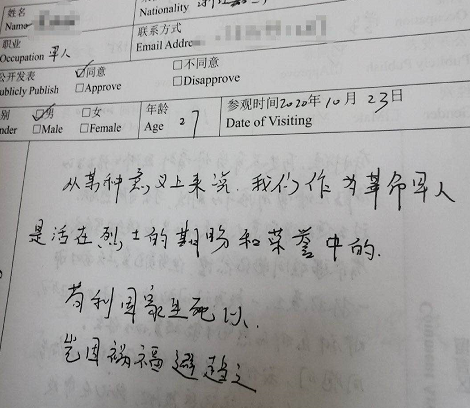 姓名
Name
Nationality
职业
Occupation 军人
联系方式
Email Addre
公开发表
ublicly Publish
☑同意
□Approve
□不同意
□Disapprove
别
nder
☑男
□Male
□女
□Female
年龄
Age 27
参观时间2020年10月23日
Date of Visiting
从某种意义上来说,我们作为革命军人
是活在烈士的期盼和荣誉中的.
苟利国家生死以,
岂因祸福避趋之